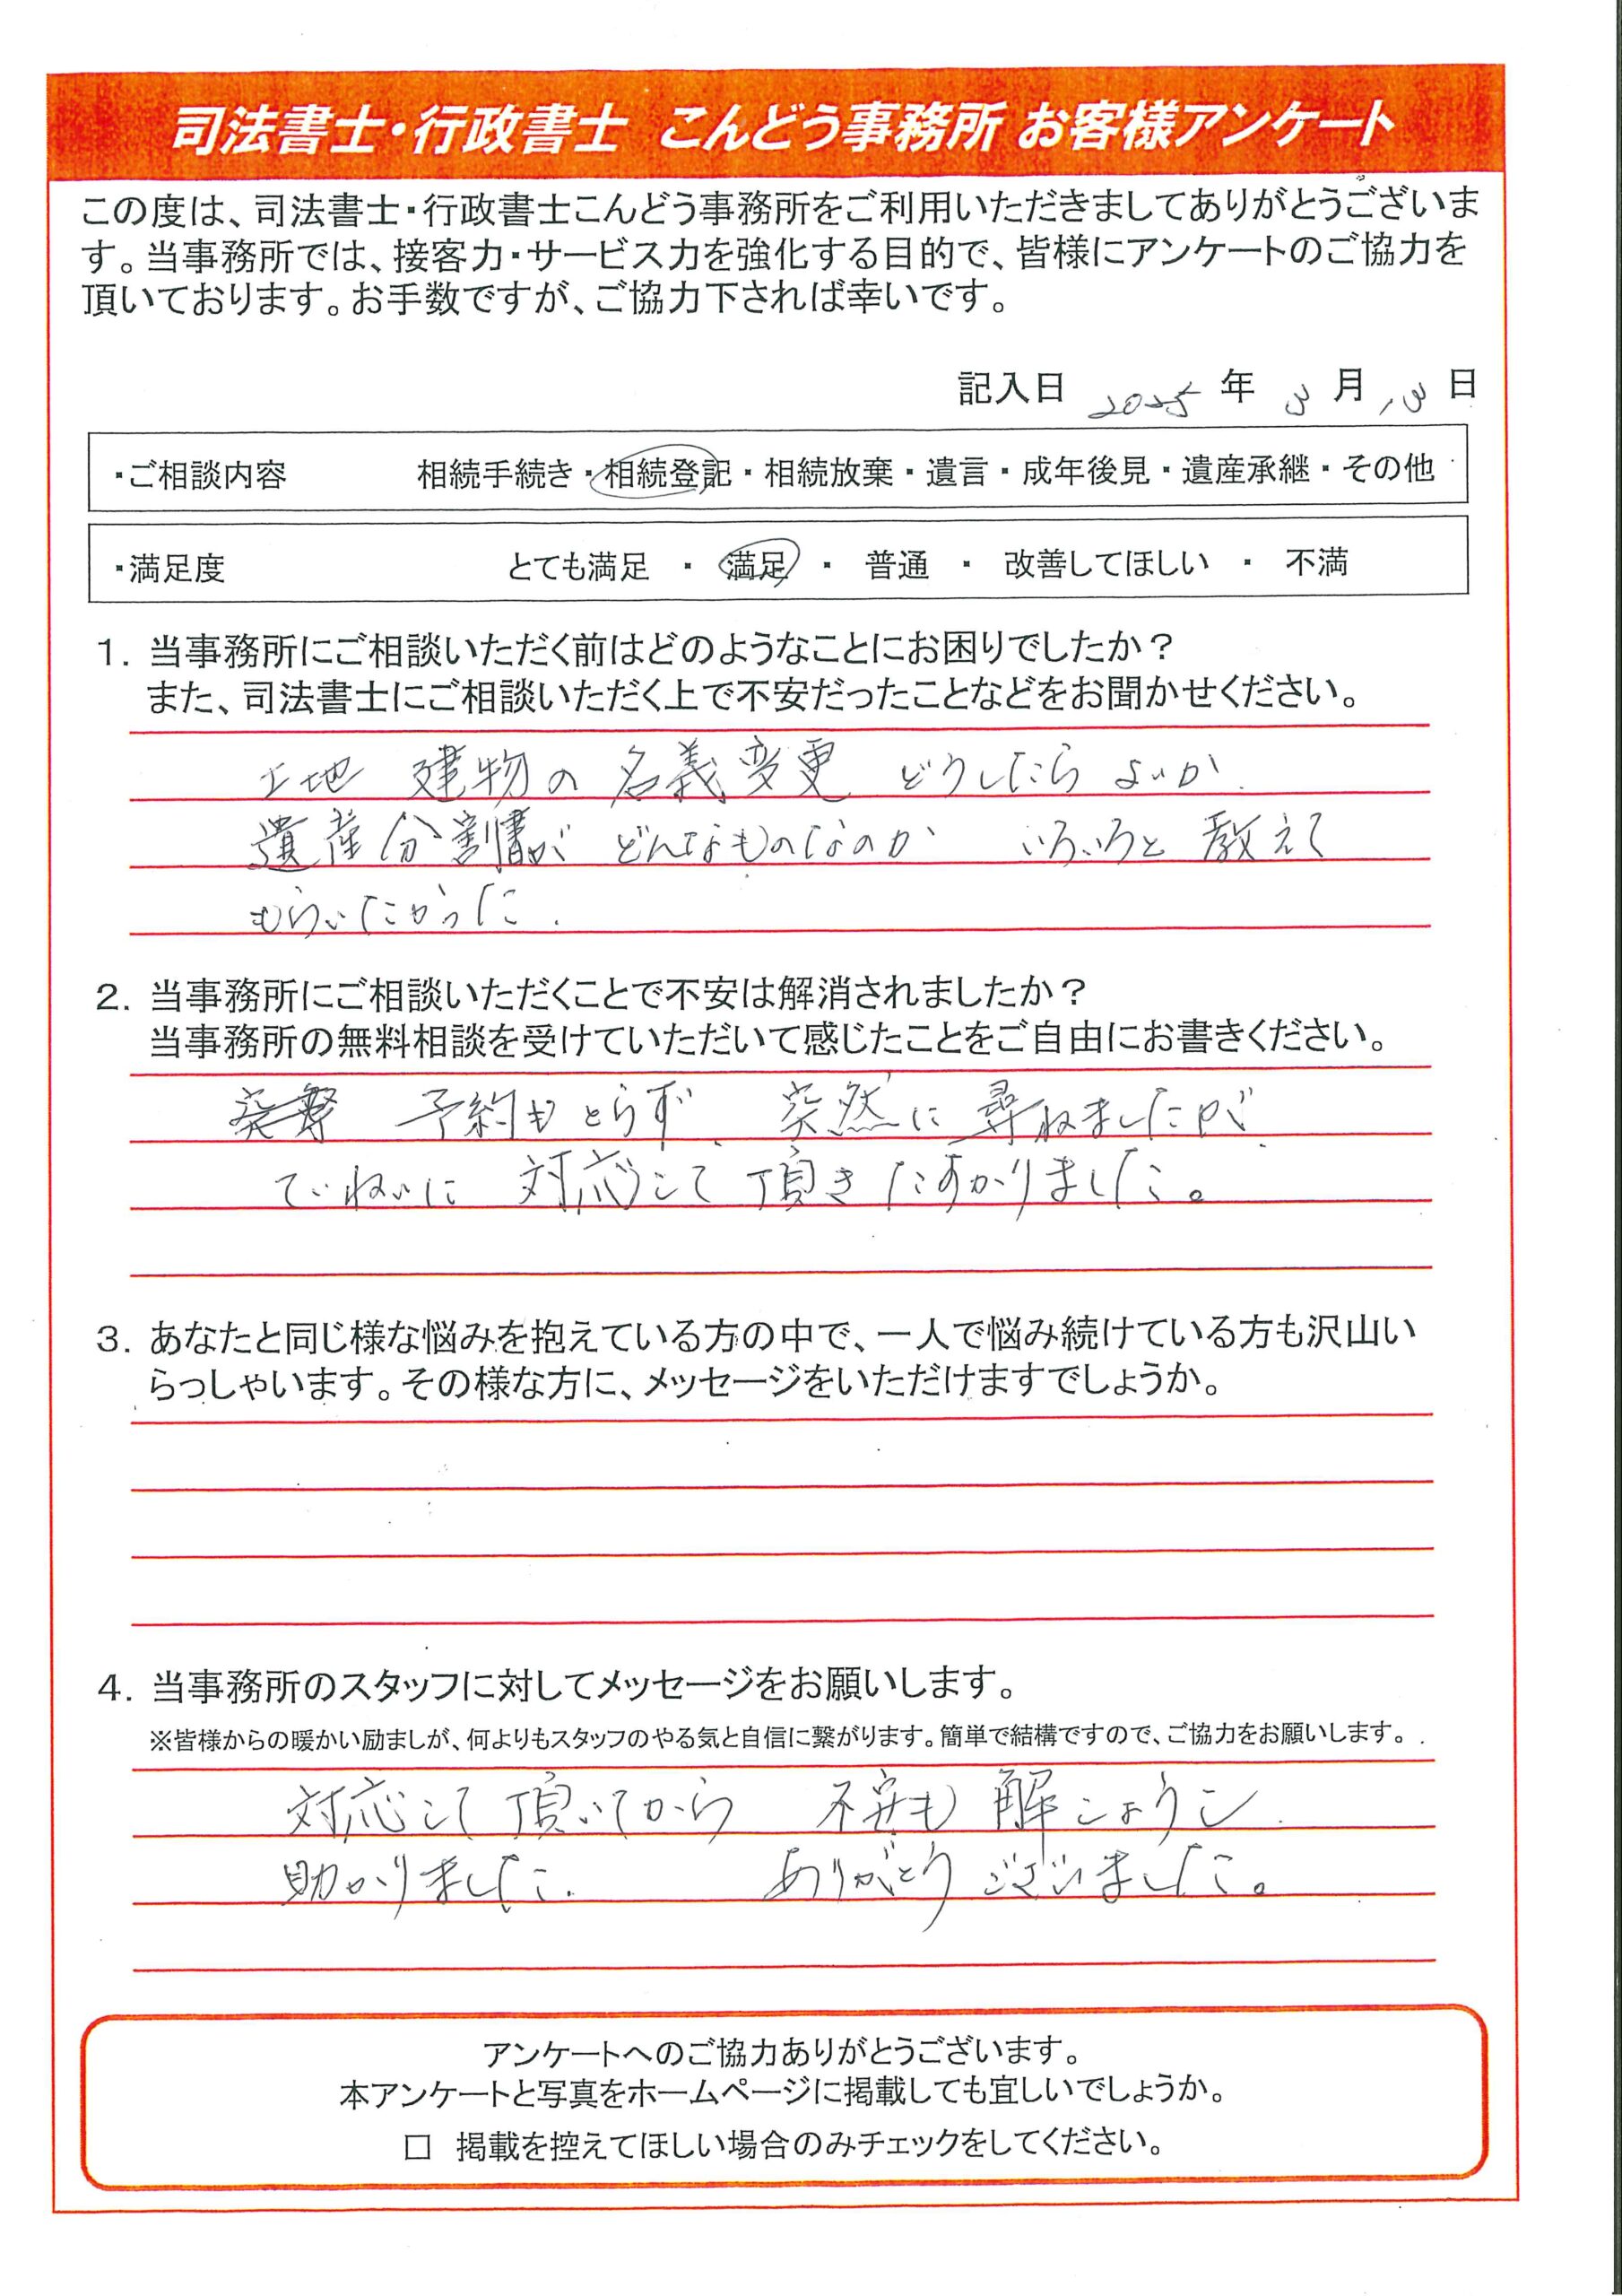 司法書士・行政書士 こんどう事務所 お客様アンケート
この度は、司法書士・行政書士こんどう事務所をご利用いただきましてありがとうございま
す。当事務所では、接客力・サービス力を強化する目的で、皆様にアンケートのご協力を
頂いております。お手数ですが、ご協力下されば幸いです。
記入日 2025 年 3 月 13 日
・ご相談内容 相続手続き・相続登記・相続放棄・遺言・成年後見・遺産承継・その他
・満足度 とても満足 ・ 満足 ・ 普通 ・ 改善してほしい ・ 不満
1. 当事務所にご相談いただく前はどのようなことにお困りでしたか？
また、司法書士にご相談いただく上で不安だったことなどをお聞かせください。
土地 建物の 名義変更 どうしたら よいか
遺産分割書が どんなものなのか いろいろと 教えて
もらいたかった.
2. 当事務所にご相談いただくことで不安は解消されましたか？
当事務所の無料相談を受けていただいて感じたことをご自由にお書きください。
予約もとらず、突然に 尋ねましたが、
ていねいに 対応して 頂き たすかりました。
3. あなたと同じ様な悩みを抱えている方の中で、一人で悩み続けている方も沢山い
らっしゃいます。その様な方に、メッセージをいただけますでしょうか。
4. 当事務所のスタッフに対してメッセージをお願いします。
※皆様からの暖かい励ましが、何よりもスタッフのやる気と自信に繋がります。簡単で結構ですので、ご協力をお願いします。
対応して 頂いてから 不安も 解しょうし
助かりました. ありがとうございました。
アンケートへのご協力ありがとうございます。
本アンケートと写真をホームページに掲載しても宜しいでしょうか。
□ 掲載を控えてほしい場合のみチェックをしてください。